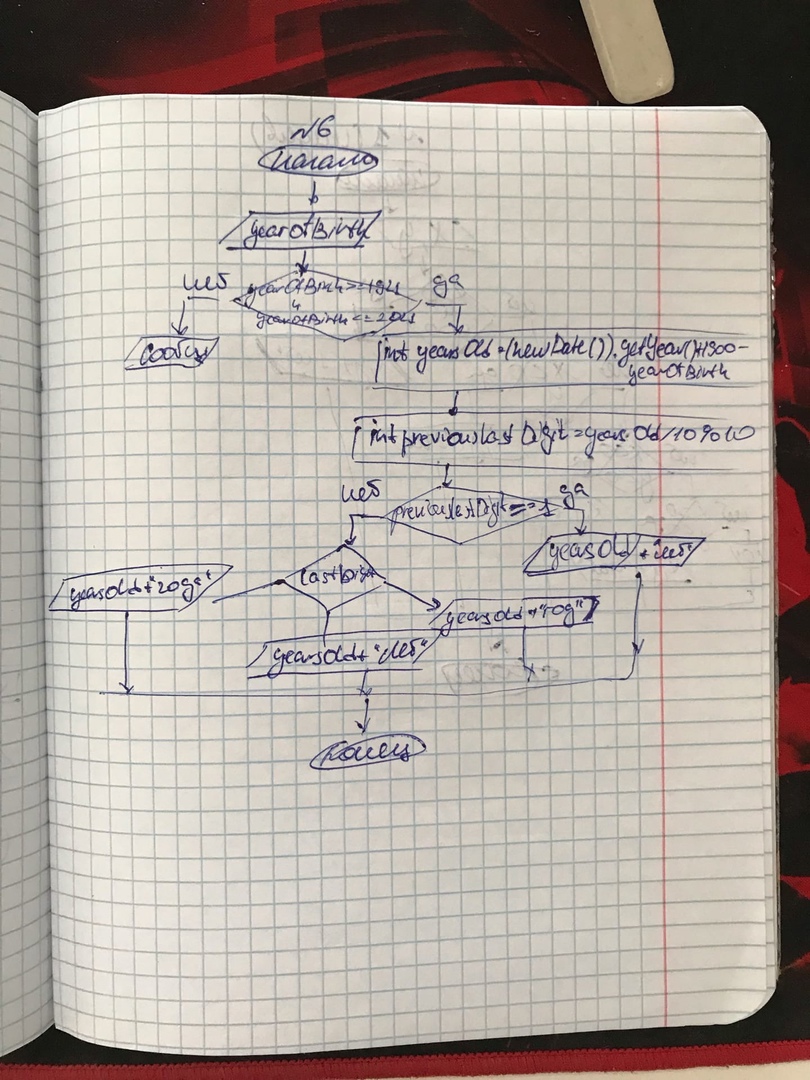 №6
Начало
yearOfBirth
нет
yearOfBirth>=1921
да
yearOfBirth<=2021
int yearsOld=(newDate()).getYear()+1900-
yearOfBirth
int previouslastDigit=yearsOld/10%10
нет
previouslastDigit==1
да
yearsOld+"лет"
lastDigit
yearsOld+"года"
yearsOld+"год"
yearsOld+"лет"
Конец